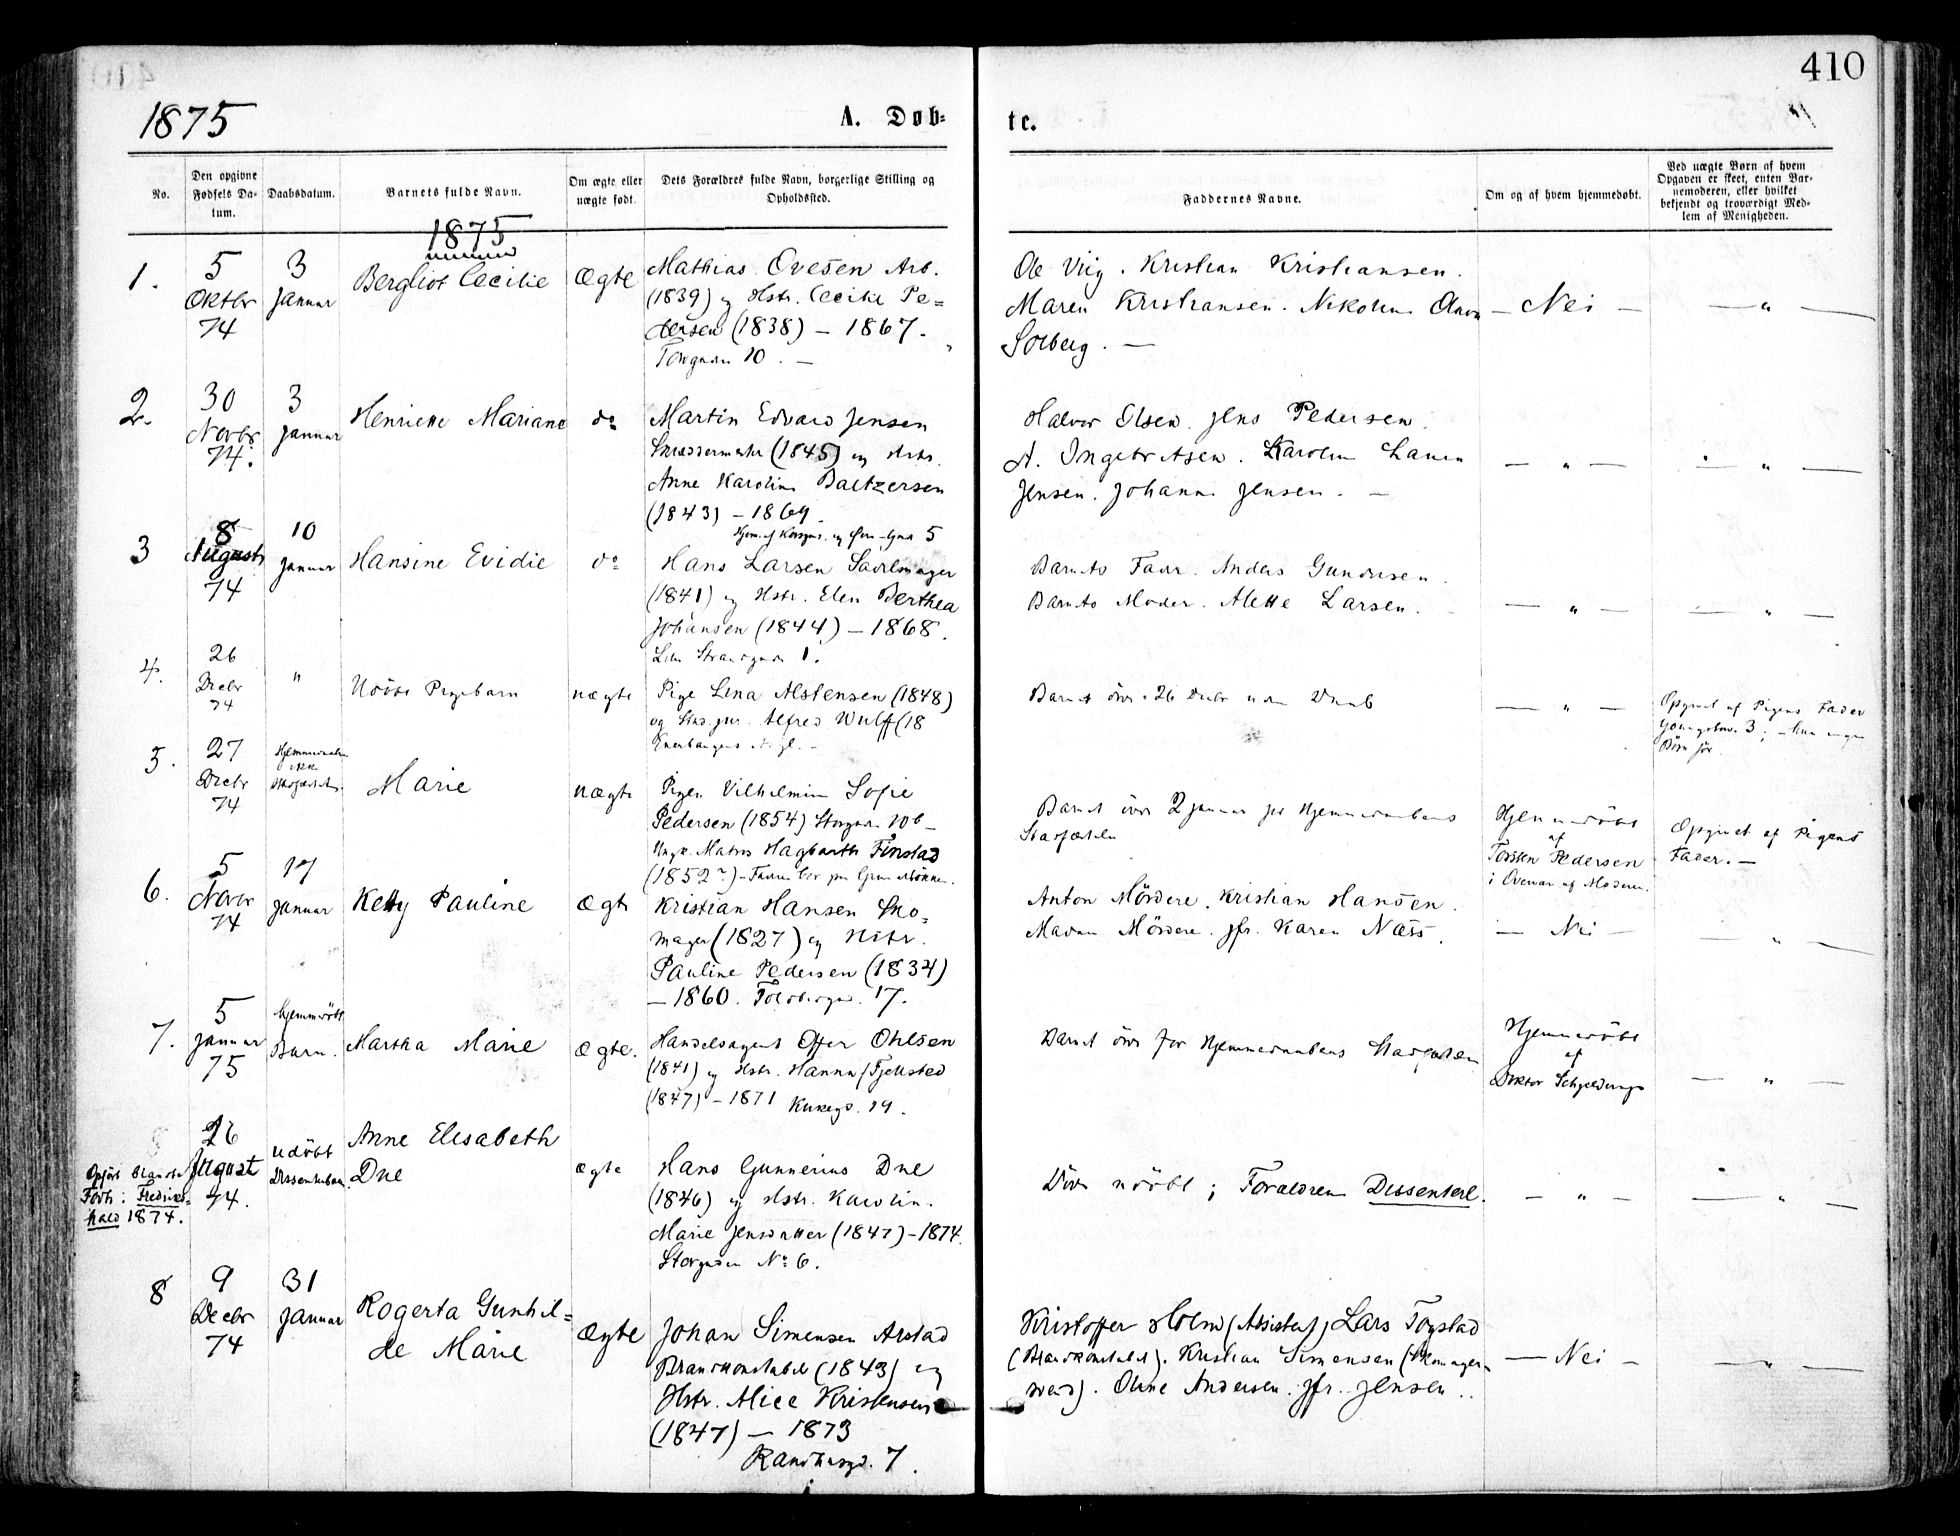 410
1875
A. Døb-
te.
No.
Den opgivne
Fødsels Da-
tum.
Daabsdatum.
Barnets fulde Navn.
Om ægte eller
uægte født.
Dets Forældres fulde Navn, borgerlige Stilling og
Opholdssted.
Faddernes Navne.
Om og af hvem hjemmedøbt.
Ved uægte Børn af hvem
Opgaven er skeet, enten Bar-
nemoderen, eller hvilket
bekjendt og troværdigt Med-
lem af Menigheden.
1875
1.
5
Oktbr
74
3
Januar
Bergliot Cecilie
Ægte
Mathias Ovesen Arb.
(1839) og Hstr. Cecilie Pe=
dersen (1838) – 1867.
10. –
Ole Viig. Kristian Kristiansen.
Maren Kristiansen.
Solberg. –
– Nei –
— " —
2.
30
Novbr
74.
3
Januar
Henriette Mariane
do
Martin Edvard Jensen
(1845) og Hstr.
Anne Karoline Baltzersen
(1843) – 1869.
5
Halvor Olsen. Jens Pedersen.
A. Ingebretsen. Karoline
Jensen. Johanne Jensen. –
— " —
— " —
3
8
August
74
10
Januar
Hansine Evidie
do
Hans Larsen Sadelmager
(1841) og Hstr. Elen Berthea
Johansen (1844) – 1868.
Lille Strandgade 1.
Barnets Fader. Anders Gundersen.
Barnets Moder. Mette Larsen.
— " —
— " —
4.
26
Decbr
74
"
Udöbt Pigebarn
uægte
Pige Lina Alstensen (1848)
og Stud. jur. Alfred Wulff (18
Barnet döde 26 Decbr uden Daab
— " —
Opgivet af Pigens Fader
3;
Börn för
5.
27
Decbr
74
Hjemmedaaben
ikke
stadfæstet.
Marie
uægte
Pigen Vilhelmine Sofie
Pedersen (1854) Storgaden 10b –
Ungk. Matros Hagbarth Finstad
(1852?) –
Barnet döde 2 Januar för Hjemmedaabens
Stadfæstelse
Hjemmedöbt
af
Torsten Pedersen
i Overvær af Moderen.
Opgivet af Pigens
Fader. –
6.
5
Novbr
74
17
Januar
Ketty Pauline
Ægte
Kristian Hansen Sko=
mager (1827) og Hstr.
Pauline Pedersen (1834)
– 1860. 17.
Anton Mördere. Kristian Hansen.
Madam Mördere. Jfr. Karen Næss.
— Nei —
— " —
7.
5
Januar
75
Hjemmedöbt
Barn.
Martha Marie
Ægte.
Handelsagent Offer Ohlsen
(1841) og Hstr. Hanna (Fjellsted
(1847) – 1871 Kirkegd. 19.
Barnet döde för Hjemmedaabens Stadfæstelse
Hjemmedöbt
af
Doktor Schjelderup
— " —
Opfört blandt
Födte i Fredriks=
hald 1874.
26
August
74.
Udöbt
Dissenterbarn.
Anne Elisabeth
Due
ægte
Hans Gunnerius Due
(1846) og Hstr. Karoline
Marie Jensdatter (1847) – 1874.
Storgaden No 6.
Döde udöbt; Forældrene Dissentere.
— " —
— " —
8
9
Decbr
74
31
Januar
Rogerta Gunhil=
de Marie
Ægte
Johan Simensen Arstad
Brandkonstabel (1843) og
Hstr. Alice Kristensen
(1847) – 1873
Raadhusgd. 7.
Kristoffer Holm (Assistent), Lars Fogstad
(Brandkonstabel). Kristian Simensen (Skomager-
svend). Oline Andersen. Jfr. Jensen.
— Nei —
— " —